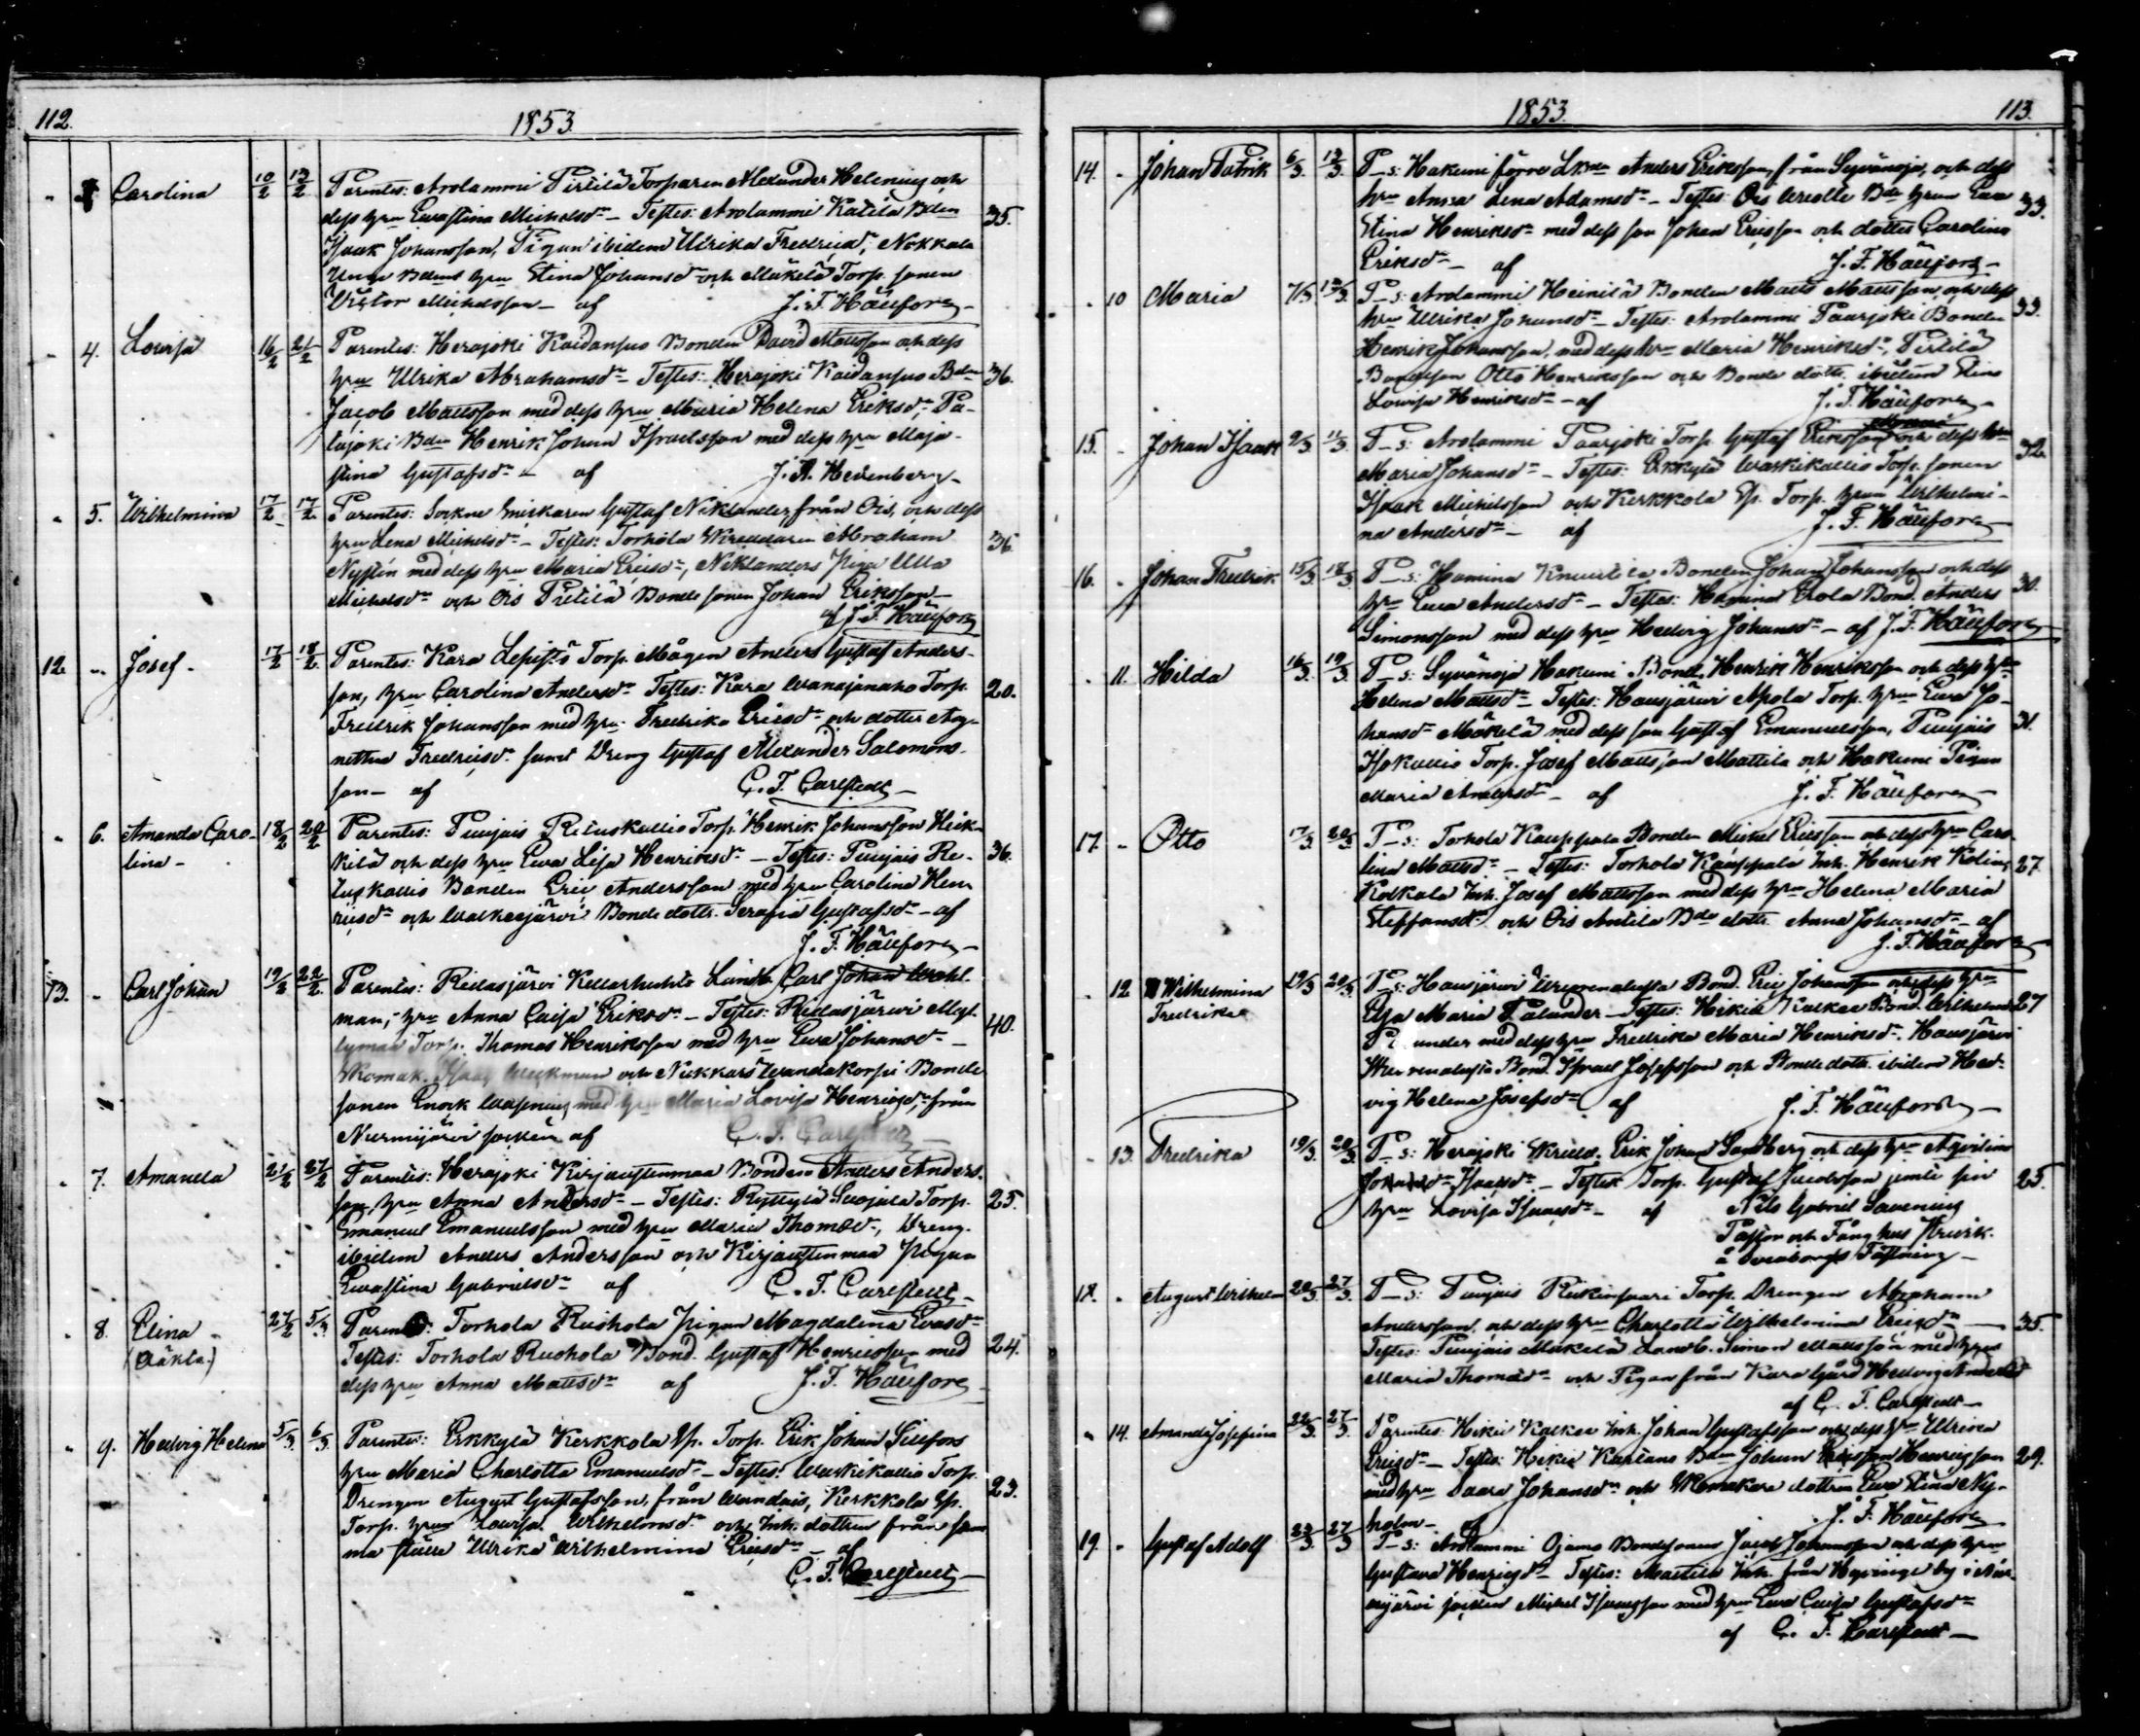 112.
1853.
3. Carolina 10/2 13/2 Parentes: Arolammi Pirtilä Torparen Alexander Helenius och
dess hru Evastina Michelsdr – Testes: Arolammi Katila Bden 35.
Isaak Johansson, Pigan ibidem Ulrika Fredricsdr, Nokkala
Bdens hru Stina Johansdr och Mäkelä Torp. sonen
Victor Michelsson – af J. F. Häufors –
4. Lovisa 16/2 21/2 Parentes: Herajoki Kaidansuo Bonden David Mattsson och dess
hru Ulrika Abrahamsdr – Testes: Herajoki Kaidansuo Bden 36.
Jacob Mattsson med dess hru Maria Helena Eriksdr, Pa-
lajoki Bden Henrik Johan Israelsson med dess hru Maja-
stina Gustafsdr – af J. A. Hedenberg –
5. Wilhelmina 17/2 17/2 Parentes: Sockne Gustaf Niklander, från Ois, och dess
hru Lena Michelsdr – Testes: Torhola Skräddaren Abraham 36.
Nystén med dess hru Maria Ericsdr, Niklanders piga Ulla
Michelsdr och Ois Pietilä Bonde sonen Johan Eriksson –
af J. F. Häufors
12. Josef – 17/2 18/2 Parentes: Kara Lepistö Torp. Mågen Anders Gustaf Anders-
son, hru Carolina Andersdr Testes: Kara Wanajanaho Torp. 20.
Fredrik Johansson med hru Fredrika Ericsdr och dotter Ag-
netha Fredricsdr samt Dreng Gustaf Alexander Salomons-
son – af C. F. Carlstedt –
6. Amanda Caro- 18/2 20/2 Parentes: Puujais Retuskallio Torp. Henrik Johansson Heik-
lina – kilä och dess hru Eva Lisa Henriksdr – Testes: Puujais Re- 36.
tuskallio Bonden Eric Andersson med hru Carolina Hen-
ricsdr och Walkeajärvi Bonde dottr. Serafia Gustafsdr – af
J. F. Häufors –
13. Carl Johan 19/2 22/2 Parentes: Ridasjärvi Kellarhuhta Landb. Carl Johan Wahl-
man, hru Anna Caisa Eriksdr – Testes: Ridasjärvi Myl- 40.
lymaa Torp. Thomas Henriksson med hru Eva Johansdr –
Skomak. Isaac och Nukkars Wandakorpi Bonde
sonen Enock med hru Maria Lovisa Henricsdr, från
Nurmijärvi socken af C. F. Carlstedt
7. Amanda 21/2 27/2 Parentes: Herajoki Kirjaustenmaa Bonden Anders Anders-
son, hru Anna Andersdr – Testes: Ryttylä Suojala Torp. 25.
Emanuel Emanuelsson med hru Maria Thomædr, Dreng.
ibidem Anders Andersson och Kirjaustenmaa Pigan
Evastina Gabrielsdr af C. F. Carlstedt –
8. Elina – 27/2 5/3 Parentes: Torhola Ruohola Pigan Magdalena Evasdr
(Oäkta.) Testes: Torhola Ruohola Bond. Gustaf Henricsson med 24.
dess hru Anna Mattsdr af J. F. Häufors
9. Hedvig Helena 5/3 6/3 Parentes: Erkkylä Kerkkola Sp. Torp. Erik Johan Silfors
hru Maria Charlotta Emanuelsdr – Testes: Waskikallio Torp. 23.
Drengen August Gustafsson, från Wandais, Kerkkola Sp.
Torp. hru Lovisa Wilhelmsdr och Inh. dottren från sam-
ma ställe Ulrika Wilhelmina Ericsdr – af
C. F. Carlstedt –
1853.
113.
14. – Johan Patrik 6/3 13/3 P–s: Hakumi förre Anders Eriksson, från Syvänoja, och dess
hru Anna Lena Adamsdr – Testes: Ois Bde hrun Eva 33.
Stina Henriksdr med dess son Johan Ericsson och dotter Carolina
Eriksdr – af J. F. Häufors –
10 Maria 7/3 13/3 P–s: Arolammi Heinilä Bonden Matts Mattsson och dess
hru Ulrika Johansdr – Testes: Arolammi Paarjoki Bonden 33.
Henrik Johansson, med dess hru Maria Henriksdr, Pirtilä
Bondeson Otto Henriksson och Bonde dottr. ibidem Stina
Lovisa Henriksdr – af J. F. Häufors –
15. – Johan Isaak 9/3 11/3 P–s: Arolammi Paarjoki Torp. Gustaf Eriksson och dess hru
Maria Johansdr – Testes: Erkkylä Waskikallio Torp. sonen 32.
Isaak Michelsson och Kerkkola Sp. Torp. hrun Wilhelmi-
na Andersdr – af J. F. Häufors
16. – Johan Fredrik 15/3 18/3 P–s: Hamina Bonden Johan Johansson och dess
hru Eva Andersdr – Testes: Hamina Erola Bond. Anders 30.
Simonsson med dess hru Hedvig Johansdr – af J. F. Häufors
11. Hilda 16/3 19/3 P–s: Syvänoja Hakumi Bond. Henrik Henriksson och dess hru
Helena Mattsdr – Testes: Hausjärvi Apola Torp. hru Eva Jo-
hansdr Mäkelä med dess son Gustaf Emanuelsson, Puujais 31.
Isokallio Torp. Josef Mattsson Mattila och Hakumi Pigan
Maria Andersdr – af J. F. Häufors –
17. – Otto 17/3 20/3 P–s: Torhola Kauppala Bonden Michel Ericsson och dess hru Caro-
lina Mattsdr – Testes: Torhola Kauppala Inh. Henrik Kolin, 27.
Kolkala Inh. Josef Mattsson med dess hru Helena Maria
Steffansdr och Ois Antila Bde dottr. Anna Johansdr – af
J. F. Häufors
12. Wilhelmina 19/3 20/3 P–s: Hausjärvi Bond. Eric Johansson och dess hru
Fredrika Maria Palander – Testes: Hikiä Kalkea Bond. Wilhelm 27
med dess hru Fredrika Maria Henriksdr. Hausjärvi
Bond. Israel Josefsson och Bonde dottr. ibidem Hed-
vig Helena Josefsdr af J. F. Häufors –
13. Fredrika 19/3 20/3 P–s: Herajoki Skrädd. Erik Johan Sandberg och dess hru
Isaacsdr – Testes Torp. Gustaf jemte sin 25.
hru Lovisa Isaacsdr – af Nils Gabriel Savenius
Pastor och Fånghus
å Sveaborgs Fästning –
18. – August Wilhelm 20/3 27/3 P–s: Puujais Torp. Drengen Abraham
Andersson och dess hru Charlotta Wilhelmina Ericsdr – 35.
Testes: Puujais Mäkelä Landb. Simon Mattsson med hrun
Maria Thomædr och Pigan från Kara Gård Hedvig Andersdr
af C. F. Carlstedt –
14. Amanda Josefina 22/3 27/3 Parentes: Hikiä Kalkea Inh. Johan Gustafsson och dess hru Ulrica
Ericsdr – Testes: Hikiä Bden Johan Henricsson 29.
med hru Saara Johansdr och Skomakare dottren Eva Stina Ny-
holm – af J. F. Häufors
19. – Gustaf Adolf 23/3 27/3 P–s: Arolammi Ojamo Bondesonen Jacob Johansson och dess hru
Gustava Henricsdr – Testes: Inh. från Hyvinge by i Nur-
mijärvi socken Michel Isaacsson med hru Eva Caisa Gustafsdr
af C. F. Carlstedt –